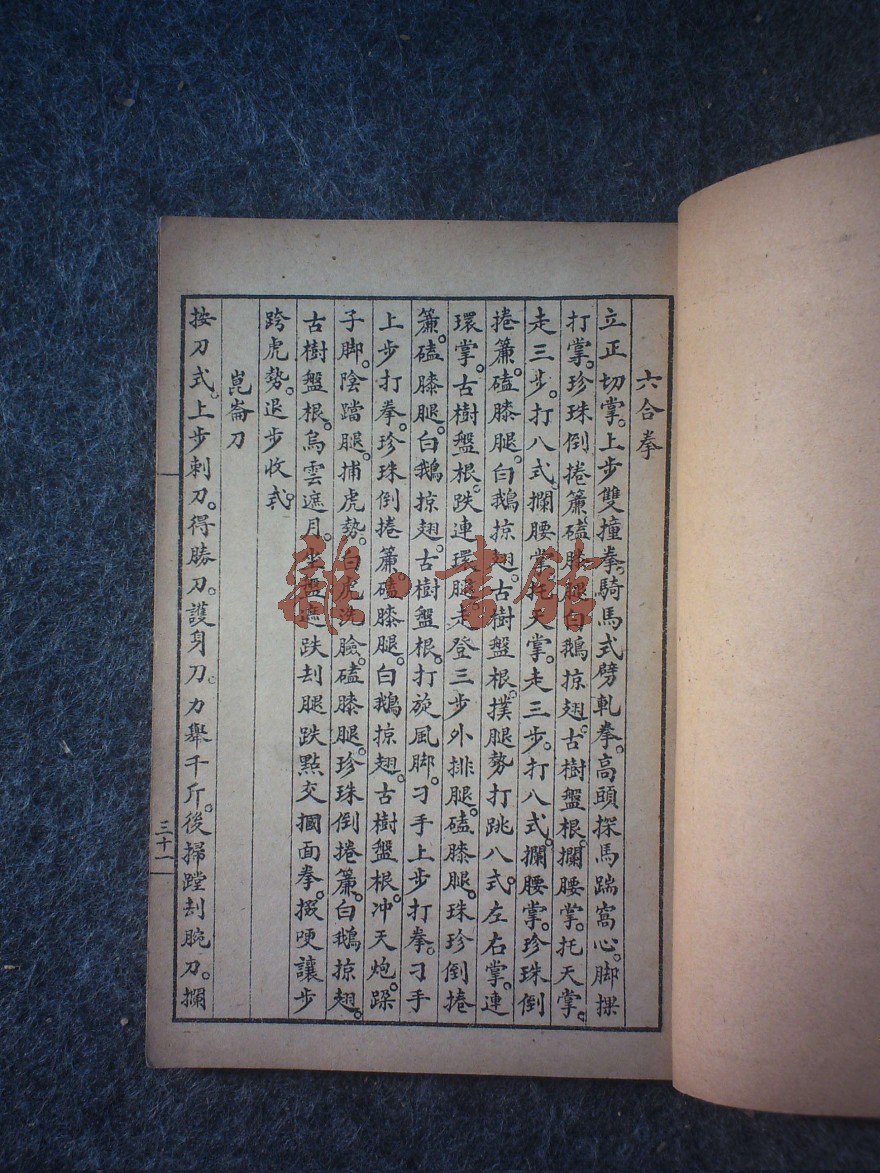 六合拳
立正切掌。上步雙撞拳。騎馬式劈軋拳。高頭探馬踹窩心。脚揲
打掌。珍珠倒捲簾磕膝腿白鵝掠翅。古樹盤根。攔腰掌。托天掌。
走三步。打八式。攔腰掌托天掌。走三步。打八式。攔腰掌。珍珠倒
捲簾。磕膝腿。白鵝掠翅。古樹盤根。撲腿勢打跳八式。左右掌。連
環掌。古樹盤根。跌連環腿走登三步外排腿。磕膝腿。珠珍倒捲
簾。磕膝腿。白鵝掠翅。古樹盤根。打旋風脚。刁手上步打拳。刁手
上步打拳。珍珠倒捲簾。磕膝腿。白鵝掠翅。古樹盤根。冲天炮。跺
子脚。陰蹓腿。捕虎勢。白虎洗臉。磕膝腿。珍珠倒捲簾。白鵝掠翅。
古樹盤根。烏雲遮月。坐盤遮跌刦腿跌點交摑面拳。掇哽讓步
跨虎勢。退步收式。
崑崙刀
按刀式。上步刺刀。得勝刀。護身刀。力舉千斤。後掃蹚刦腕刀。攔
三十一
書館